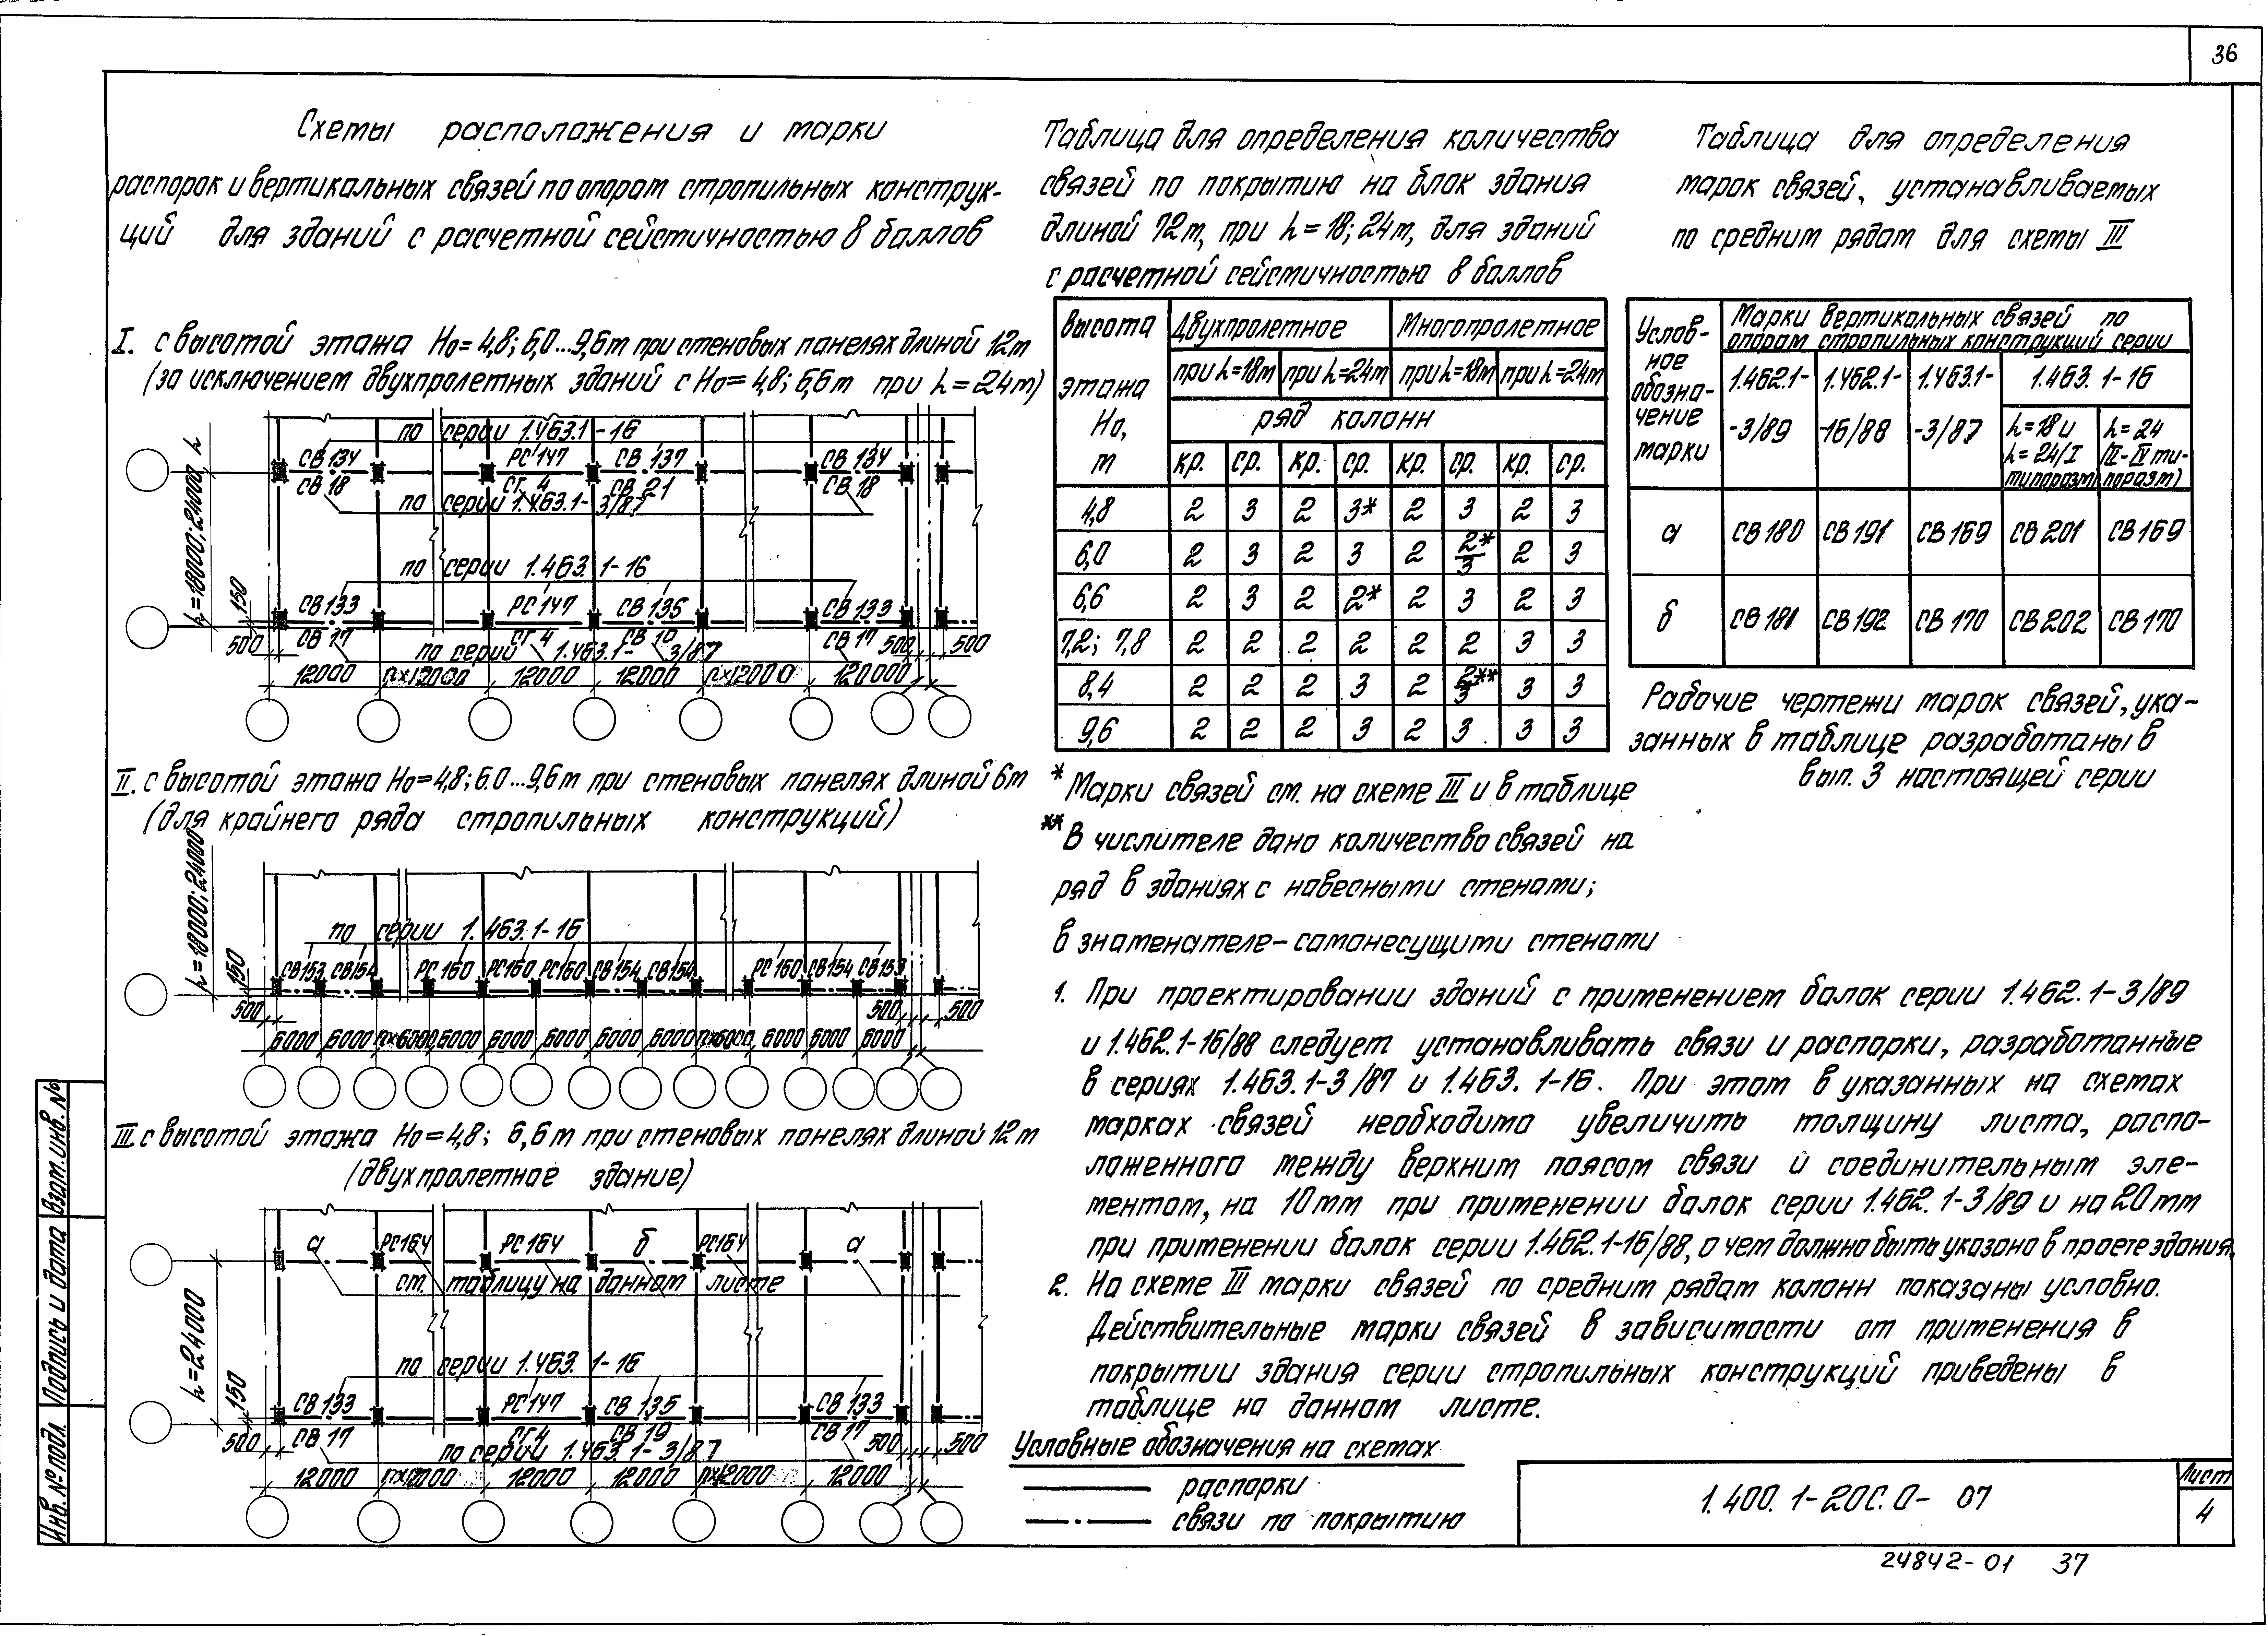 36
Схемы расположения и марки
распорок и вертикальных связей по опорам стропильных конструк-
ций для зданий с расчетной сейсмичностью 8 баллов
I. с высотой этажа H₀=4,8; 6,0...9,6м при стеновых панелях длиной 12м
(за исключением двухпролетных зданий с H₀=4,8; 6,6м при h=24м)
по серии 1.463.1-16
СВ 134 РС 147 СВ 137 СВ 134
СВ 18 СГ 4 СВ 21 СВ 18
по серии 1.463.1-3/87
h=18000; 24000 h
по серии 1.463.1-16
СВ 133 РС 147 СВ 135 СВ 133
150
СВ 17 СГ 4 СВ 19 СВ 17
500 по серий 1.463.1-3/87 500 500
12000 n×12000 12000 12000 n×12000 120000
II. с высотой этажа H₀=4,8; 6.0...9,6м при стеновых панелях длиной 6м
(для крайнего ряда стропильных конструкций)
h=18000; 24000
по серии 1.463.1-16
СВ153 СВ154 РС 160 РС160 РС160 СВ154 СВ154 РС 160 СВ154 СВ153
150
500 500 500
6000 6000 n×6000 6000 6000 6000 6000 6000 n×6000 6000 6000 6000
III. с высотой этажа H₀=4,8; 6,6м при стеновых панелях длиной 12м
(двухпролетное здание)
а РС164 РС 164 б РС164 а
см. таблицу на данном листе
h=24000
по серии 1.463.1-16
СВ 133 РС147 СВ 135 СВ 133
150
СВ 17 СГ 4 СВ 19 СВ 17
500 по серии 1.463.1-3/87 500 500
12000 n×12000 12000 12000 n×12000 12000
Таблица для определения количества
связей по покрытию на блок здания
длиной 72м, при h=18; 24м, для зданий
с расчетной сейсмичностью 8 баллов
Высота этажа H₀, м Двухпролетное Многопролетное
при h=18м при h=24м при h=18м при h=24м
ряд колонн
кр. ср. кр. ср. кр. ср. кр. ср.
4,8 2 3 2 3* 2 3 2 3
6,0 2 3 2 3 2 2*/3 2 3
6,6 2 3 2 2* 2 3 2 3
7,2; 7,8 2 2 2 2 2 2 3 3
8,4 2 2 2 3 2 2**/3 3 3
9,6 2 2 2 3 2 3 3 3
* Марки связей см. на схеме III и в таблице
** В числителе дано количество связей на
ряд в зданиях с навесными стенами;
в знаменателе- самонесущими стенами
Таблица для определения
марок связей, устанавливаемых
по средним рядам для схемы III
Услов-ное обозна-чение марки Марки вертикальных связей по
опорам стропильных конструкций серии
1.462.1-3/89 1.462.1-16/88 1.463.1-3/87 1.463.1-16
h=18 и h=24(I типоразм) h=24 (II-IV ти-поразм)
а СВ 180 СВ 191 СВ 169 СВ 201 СВ 169
б СВ 181 СВ 192 СВ 170 СВ 202 СВ 170
Рабочие чертежи марок связей, ука-
занных в таблице разработаны в
вып. 3 настоящей серии
1. При проектировании зданий с применением балок серии 1.462.1-3/89
и 1.462.1-16/88 следует устанавливать связи и распорки, разработанные
в сериях 1.463.1-3/87 и 1.463.1-16. При этом в указанных на схемах
марках связей необходимо увеличить толщину листа, распо-
ложенного между верхним поясом связи и соединительным эле-
ментом, на 10мм при применении балок серии 1.462.1-3/89 и на 20мм
при применении балок серии 1.462.1-16/88, о чем должно быть указано в проете здания.
2. На схеме III марки связей по средним рядам колонн показаны условно.
Действительные марки связей в зависимости от применения в
покрытии здания серии стропильных конструкций приведены в
таблице на данном листе.
Условные обозначения на схемах
распорки
связи по покрытию
1.400.1-20С.0- 07
Лист
4
24842-01 37
Инв. № подл. Подпись и дата Взам. инв. №